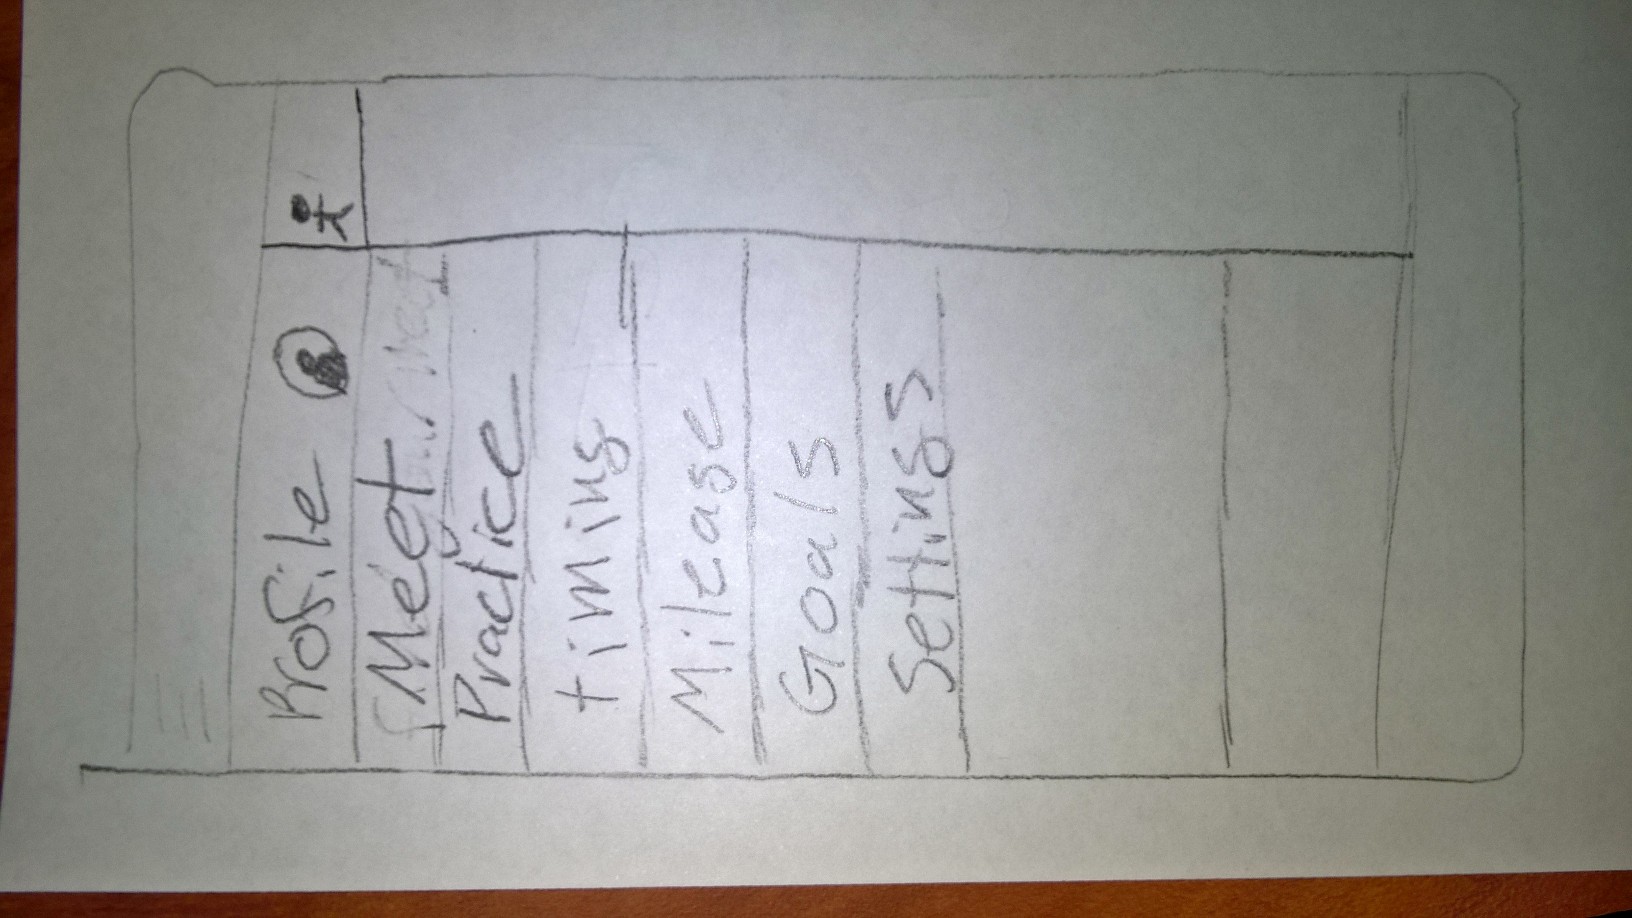 Profile
Meet
Practice
timing
Mileage
Goals
Settings